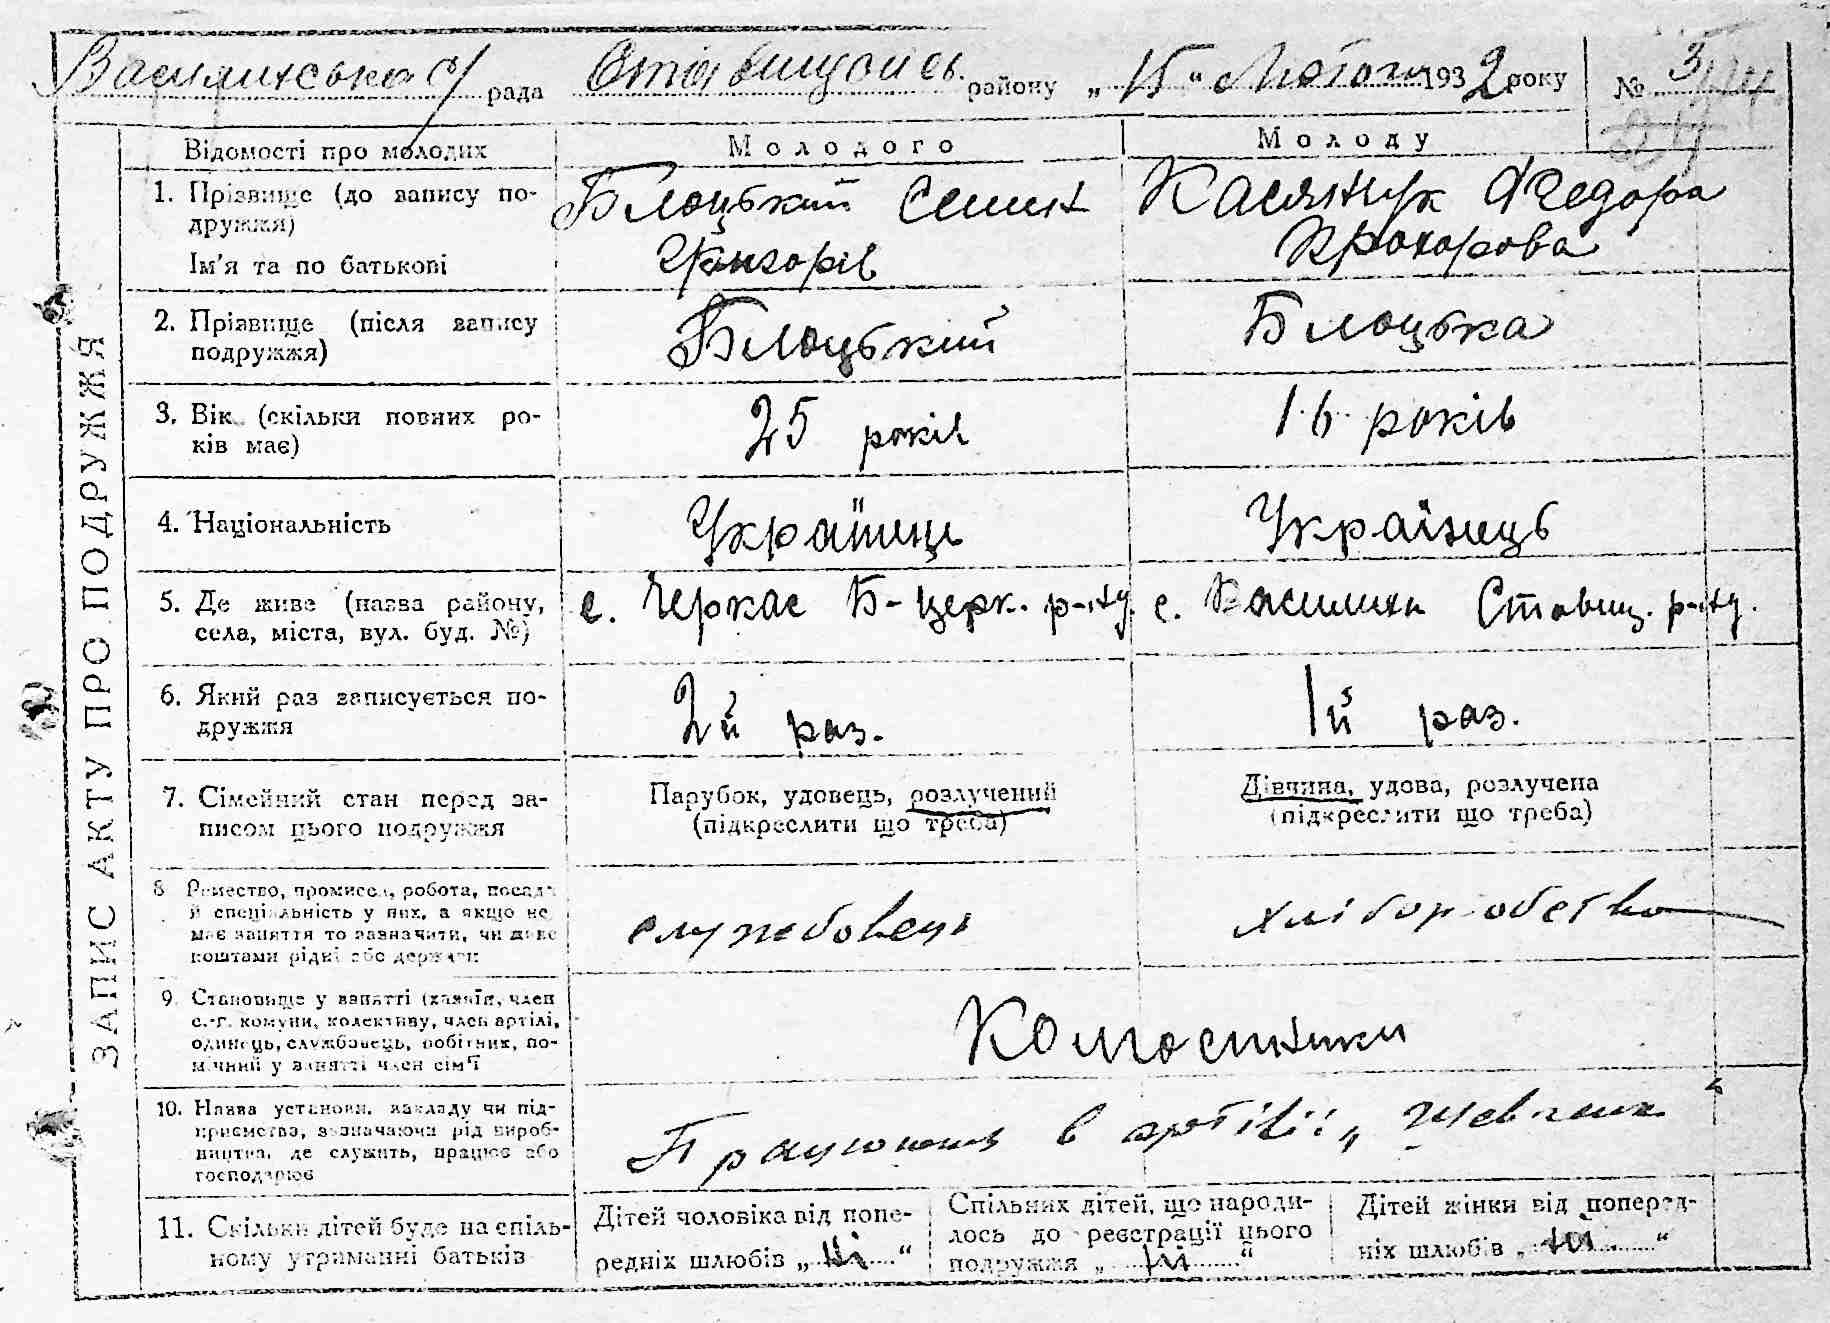 Василиська с/ рада Ставищанськ. району „ 15 “ Лютого 1932 року № 3
24
ЗАПИС АКТУ ПРО ПОДРУЖЖЯ
Відомості про молодих
Молодого
Молоду
1. Прізвище (до запису по-
дружжя)
Ім'я та по батькові
Блоцький Семен
Григорів
Касянчук Федора
Прохорова
2. Прізвище (після запису
подружжя)
Блоцький
Блоцька
3. Вік (скільки повних ро-
ків має)
25 років
16 років
4. Національність
Українць
Українець
5. Де живе (назва району,
села, міста, вул. буд. №)
с. Черкас Б-церк. р-ну.
с. Василиха Ставищ. р-ну.
6. Який раз записується по-
дружжя
2й раз.
1й раз.
7. Сімейний стан перед за-
писом цього подружжя
Парубок, удовець, розлучений
(підкреслити що треба)
Дівчина, удова, розлучена
(підкреслити що треба)
8 Ремество, промисел, робота, посада
й спеціяльність у них, а якщо не
має заняття то зазначити, чи живе
коштами рідні або держави
службовець
хліборобство
9. Становище у занятті (хазяїн, член
с.-г. комуни, колективу, член артілі,
одинець, службовець, робітник, по-
мічний у занятті член сім'ї
10. Назва установи, закладу чи під-
приємства, зазначаючи рід вироб-
ництва, де служить, працює або
господарює
Працюють в артілії „ Шевченк “
11. Скільки дітей буде на спіль-
ному утриманні батьків
Дітей чоловіка від попе-
редніх шлюбів „ ні “
Спільних дітей, що народи-
лось до реєстрації цього
подружжя „ ні “
Дітей жінки від поперед-
ніх шлюбів „ ні “